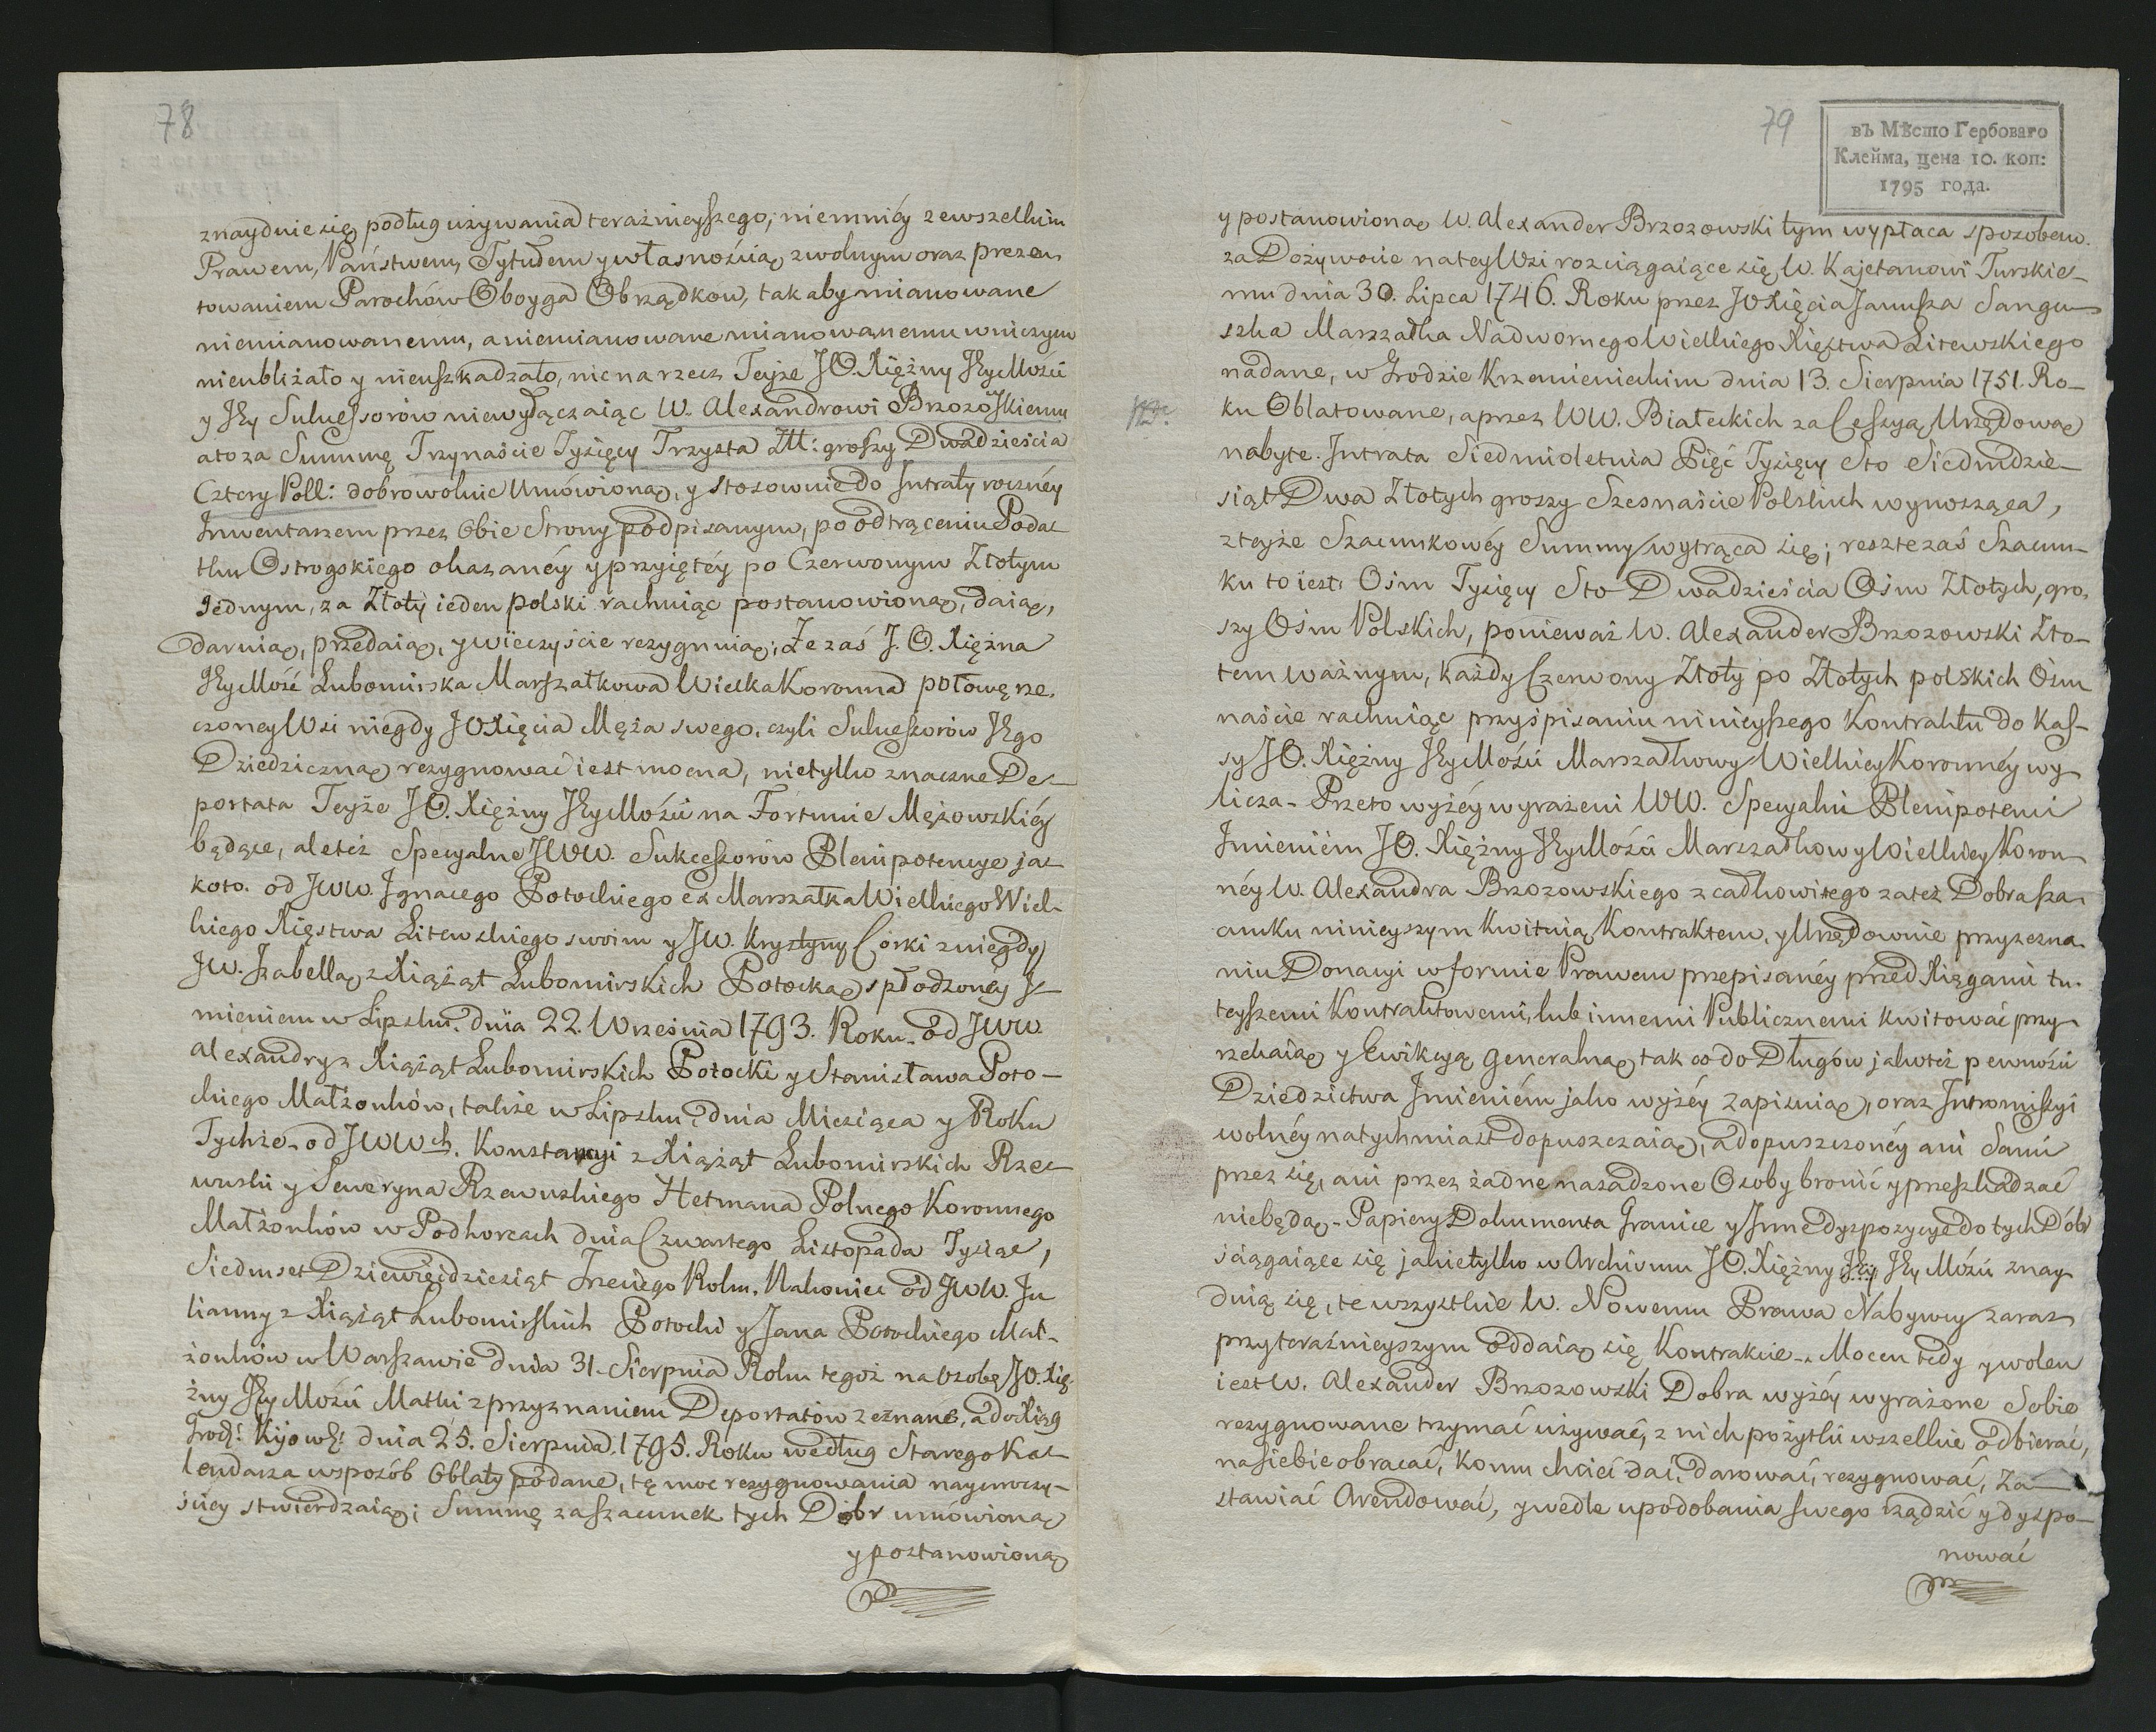 78
znayduie się, podług używania teraźnieyszego, niemniéy zewszelkim
Prawem, Państwem, Tytułem y własnością, zwolnym oraz prezen
towaniem Parochów Oboyga Obrządków, tak aby mianowane
niemianowanemu, a niemianowane mianowanemu wniczym
nieubliżało y nieuszkadzało, nic na rzecz Teyże JO. Xiężny JeyMości
y Jey Sukcessorów niewyłączaiąc W. Alexandrowi Brzozoskiemu
ato za Summę Trzynaście Tysięcy Trzysta Złł: groszy Dwadzieścia
Cztery Poll: dobrowolnie Umówioną, y stosownie do Intraty roczney
Inwentarzem przez Obie Strony podpisanym, po odtrąceniu Poda-
tku Ostrogskiego okazanéy y przyiętéy po Czerwonym Złotym
Jednym, za Złoty ieden polski rachuiąc postanowioną, daią,
daruią, przedaią, y wieczyście rezygnuią; Że zaś J. O. Xiężna
JeyMość Lubomirska Marszałkowa Wielka Koronna połowę rze-
czoney Wsi niegdy JOXięcia Męża swego, czyli Sukcessorów Jego
Dziedziczną rezygnować iest mocna, nietylko znaczne De-
portata Teyże JO. Xiężny JeyMości na Fortunie Mężowskiéy
będące, ale też Specyalne JWW. Sukcessorów Plenipotencye ja-
koto. od JWW. Ignacego Potockiego ex Marszałka Wielkiego Wiel-
kiego Xięstwa Litewskiego swoim y JW. Krystyny Córki z niegdy
JW. Izabellą z Xiążąt Lubomirskich Potocką spłodzonéy J-
mieniem w Lipsku, dnia 22. Września 1793. Roku. od JWW.
Alexandry z Xiążąt Lubomirskich Potocki y Stanisława Poto-
ckiego Małżonków, także w Lipsku, dnia Miesiąca y Roku
Tychże. od JWWch. Konstancyi z Xiążąt Lubomirskich Rze-
wuski y Seweryna Rzewuskiego Hetmana Polnego Koronnego
Małżonków w Podhorcach dnia Czwartego Listopada Tysiąc,
Siedmset Dziewięćdziesiąt Trzeciego Roku. Nakoniec od JWW. Ju
lianny z Xiążąt Lubomirskich Potocki y Jana Potockiego Mał-
żonków w Warszawie dnia 31. Sierpnia Roku tegoż na Osobę JO. Xię
żny JeyMości Matki z przyznaniem Deportatów zeznane, a do Xiąg
Grodź: Kijowź: dnia 25. Sierpnia 1795. Roku według Starego Ka-
lendarza w sposób Oblaty podane, tę moc rezygnowania nayuroczy-
ściey stwierdzaią; Summę za szacunek tych Dóbr umówioną
y postanowioną
79
въ Мѣсто Гербоваго
Клейма, цена 10. коп:
1795 года.
y postanowioną W. Alexander Brzozowski tym wypłaca sposobem.
za Dożywocie na tey Wsi rozciągaiące się, W. Kajetanowi Turskie-
mu dnia 30. Lipca 1746. Roku przez JOXięcia Janusza Sangu-
szka Marszałka Nadwornego Wielkiego Xięstwa Litewskiego
nadane, w Grodzie Krzemienieckim dnia 13. Sierpnia 1751. Ro-
ku Oblatowane, a przez WW. Białeckich za Cessyą Urzędową
nabyte. Intrata Siedmioletnia Pięć Tysięcy Sto Siedmdzie-
siąt Dwa Złotych groszy Szesnaście Polskich wynosząca,
z teyże Szacunkowéy Summy wytrąca się; resztę zaś Szacun-
ku to iest: Ośm Tysięcy Sto Dwadzieścia Ośm Złotych, gro-
szy Ośm Polskich, ponieważ W. Alexander Brzozowski Zło-
tem ważnym, każdy Czerwony Złoty po Złotych polskich Ośm
naście rachuiąc przy spisaniu ninieyszego Kontraktu do Kas-
sy JO. Xiężny JeyMości Marszałkowy Wielkiey Koronnéy wy-
licza. Przeto wyżéy wyrażeni WW. Specyalni Plenipotenci
Imieniem JO. Xiężny JeyMości Marszałkowy Wielkiey Koron-
néy W. Alexandra Brzozowskiego z całkowitego za też Dobra sza-
cunku ninieyszym kwituią Kontraktem, y Urzędownie przy zezna-
niu Donacyi w formie Prawem przepisanéy przed Xięgami tu-
teyszemi Kontraktowemi, lub innemi Publicznemi kwitować przy-
rzekaią y Ewikcyą Generalną tak co do Długów jako też pewności
Dziedzictwa Imieniem jako wyżéy zapisuią, oraz Intromissyi
wolnéy natychmiast dopuszczaią, a dopuszczonéy ani Sami
przez się, ani przez żadne nasadzone Osoby bronić y przeszkadzać
niebędą. Papiery Dokumenta Granice y Inne dyspozycye do tych Dóbr
ściągaiące się jakie tylko w Archivum JO. Xiężny Jey JeyMości znay-
duią się, te wszystkie W. Nowemu Prawa Nabywcy zaraz
przy teraźnieyszym oddaią się Kontrakcie. Mocen tedy y wolen
iest W. Alexander Brzozowski Dobra wyżéy wyrażone Sobie
rezygnowane trzymać używać, z nich pożytki wszelkie odbierać,
na siebie obracać, komu chcieć dać, darować, rezygnować, Za-
stawiać Arendować, y wedle upodobania swego rządzić y dyspo-
nować